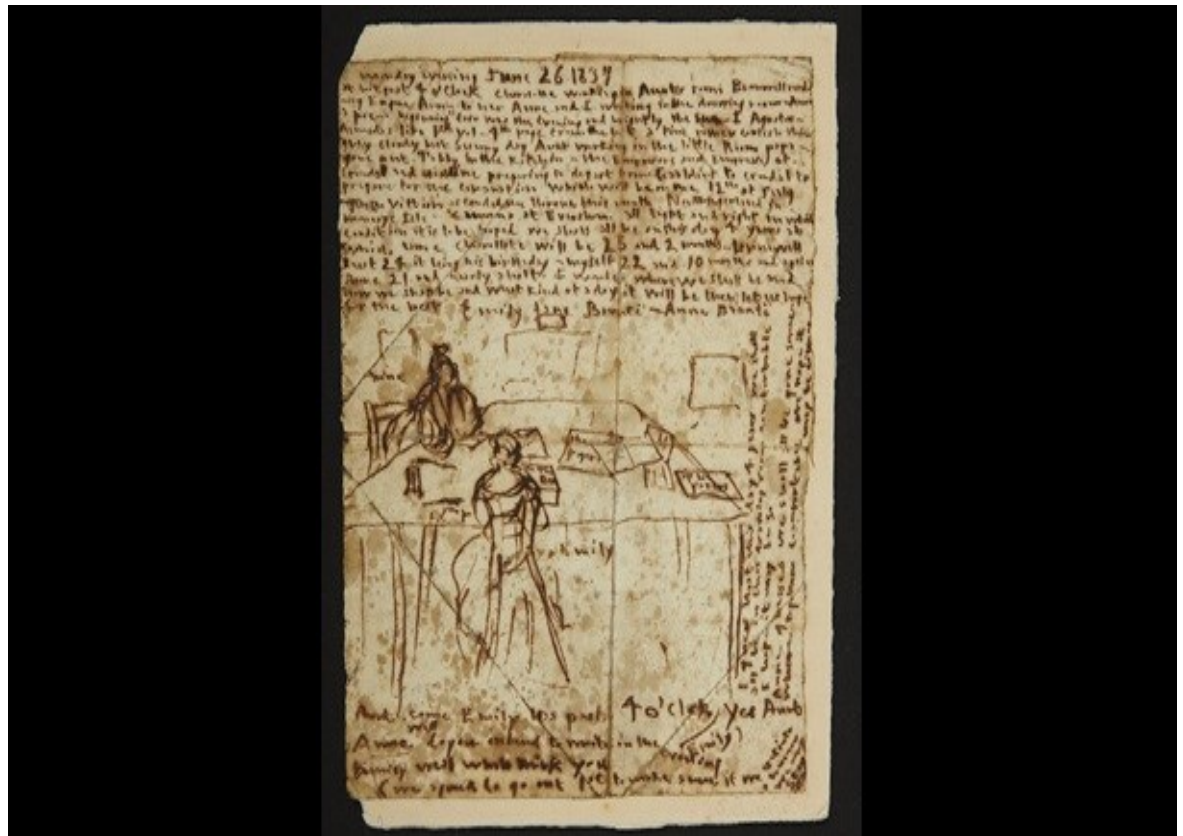 Monday evening June 26 1837
A bit past 4 o'Clock Charlotte working in Aunts room Branwell read
ing Eugene Aram to her Anne and I writing in the drawing room Anne
a poem beginning fair was the evening and brightly the Sun I Agustus
Almedas life 1st vol. 4th page from the last a fine rather coolish thin
grey cloudy but Sunny day Aunt working in the little Room papa
gone out. Tabby in the Kitchin the Emperors and Empreses of
Gondal and Gaaldine preparing to depart from Gaaldine to Gondal to
prepare for the coranation which will be on the 12th of July
Queen Vittiora ascended the throne this month. Northangerland in
Monceys Isle Zamorna at Eversham. all tight and right in which
condition it is to be hoped we shall all be on this day 4 years at
which time Charollote will be 25 and 2 months Branwell
just 24 it being his birthday myself 22 and 10 months and
Anne 21 and nearly a half I wonder where we shall be and
how we shall be and what kind of a day it will be then let us hope
for the best
Emily Jane Brontë Anne Brontë
I guess that this day 4 years we shall
all be in this drawing room comfortable
I hope it may be so
Anne guesses we shall all be gone some
where together comfortable We hope it
may be
Anne
Emily
Aunt. come Emily Its past 4 o'Clock, Yes Aunt
Emily
Anne do you intend to write in the evening
Emily well what think you
(we agreed to go out